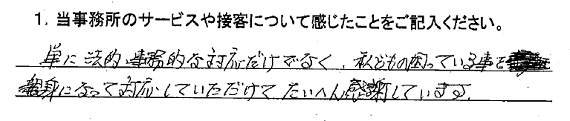 1. 当事務所のサービスや接客について感じたことをご記入ください。
単に法的、事務的な対応だけでなく、私どもの困っている事を
親身になって対応していただけて たいへん感謝しています。